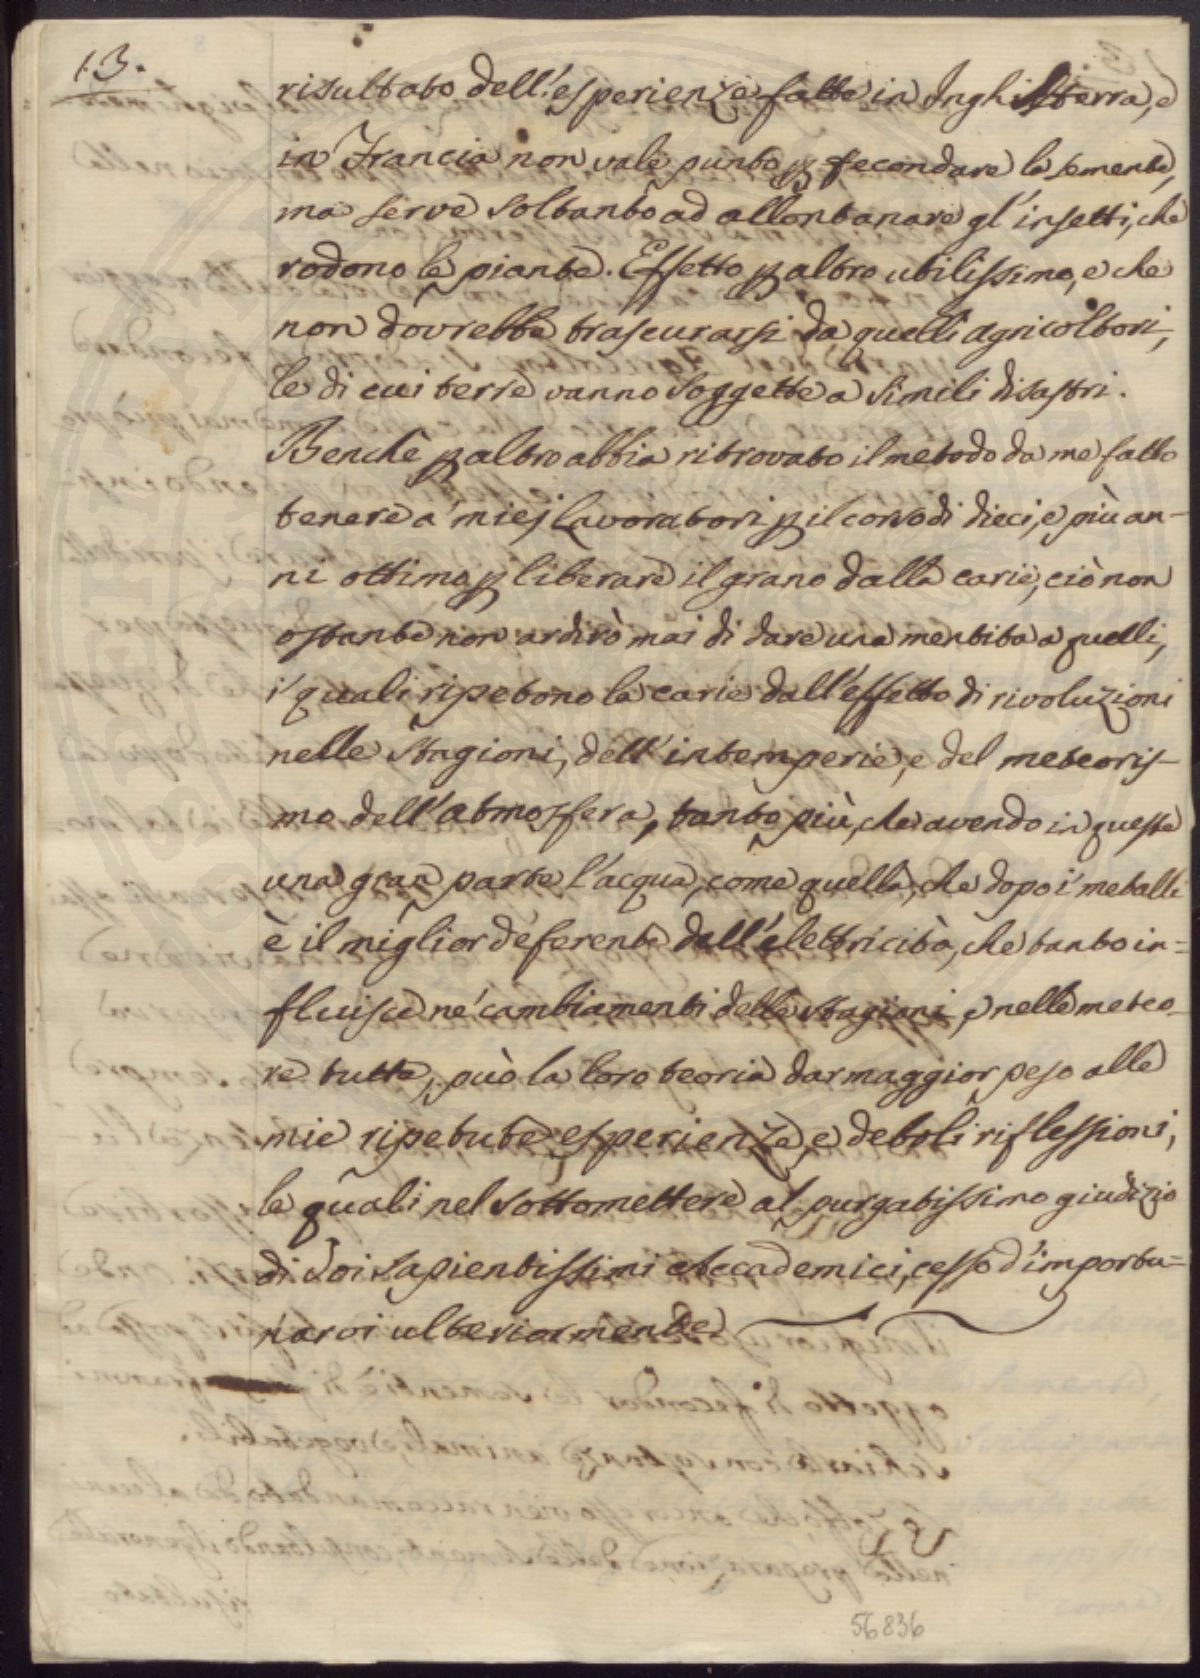 13.
risultato dell'esperienze fatte in Inghilterra, e
in Francia non vale punto p fecondare la semente,
ma serve soltanto ad allontanare gl'insetti, che
rodono le piante. Effetto p altro utilissimo, e che
non dovrebbe trascurarsi da quelli agricoltori,
le di cui terre vanno soggette a simili disastri.
Benchè p altro abbia ritrovato il metodo da me fatto
tenere a' miej Lavoratori p il corso di dieci, e più an-
ni ottimo p liberare il grano dalla carie, ciò non
ostante non ardirò mai di dare una mentita a quelli,
i' quali ripetono la carie dall'effetto di rivoluzioni
nelle stagioni, dell'intemperie, e del meteoris-
mo dell'atmosfera, tanto più, che avendo in queste
una gran parte l'acqua, come quella, che dopo i' metalli
è il miglior deferente dell'elettricità, che tanto in=
fluisce ne' cambiamenti delle stagioni, e nelle meteo-
re tutte, può la loro teoria dar maggior peso alle
mie ripetute esperienze, e deboli riflessioni,
le quali nel sottomettere al purgatissimo giudizio
di Voi Sapientissimi Accademici, cesso d'importu=
narvi ulteriormente.
56836